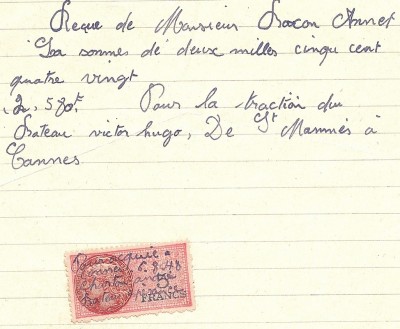 Reçue de Monsieur Lacon Annet
La sommes de deux milles cinqu cent
quatre vingt
2.580f. Pour la traction du
Bateau victor hugo, De St Mammès à
Cannes
Pour acquie
6.8.48
FRANCS